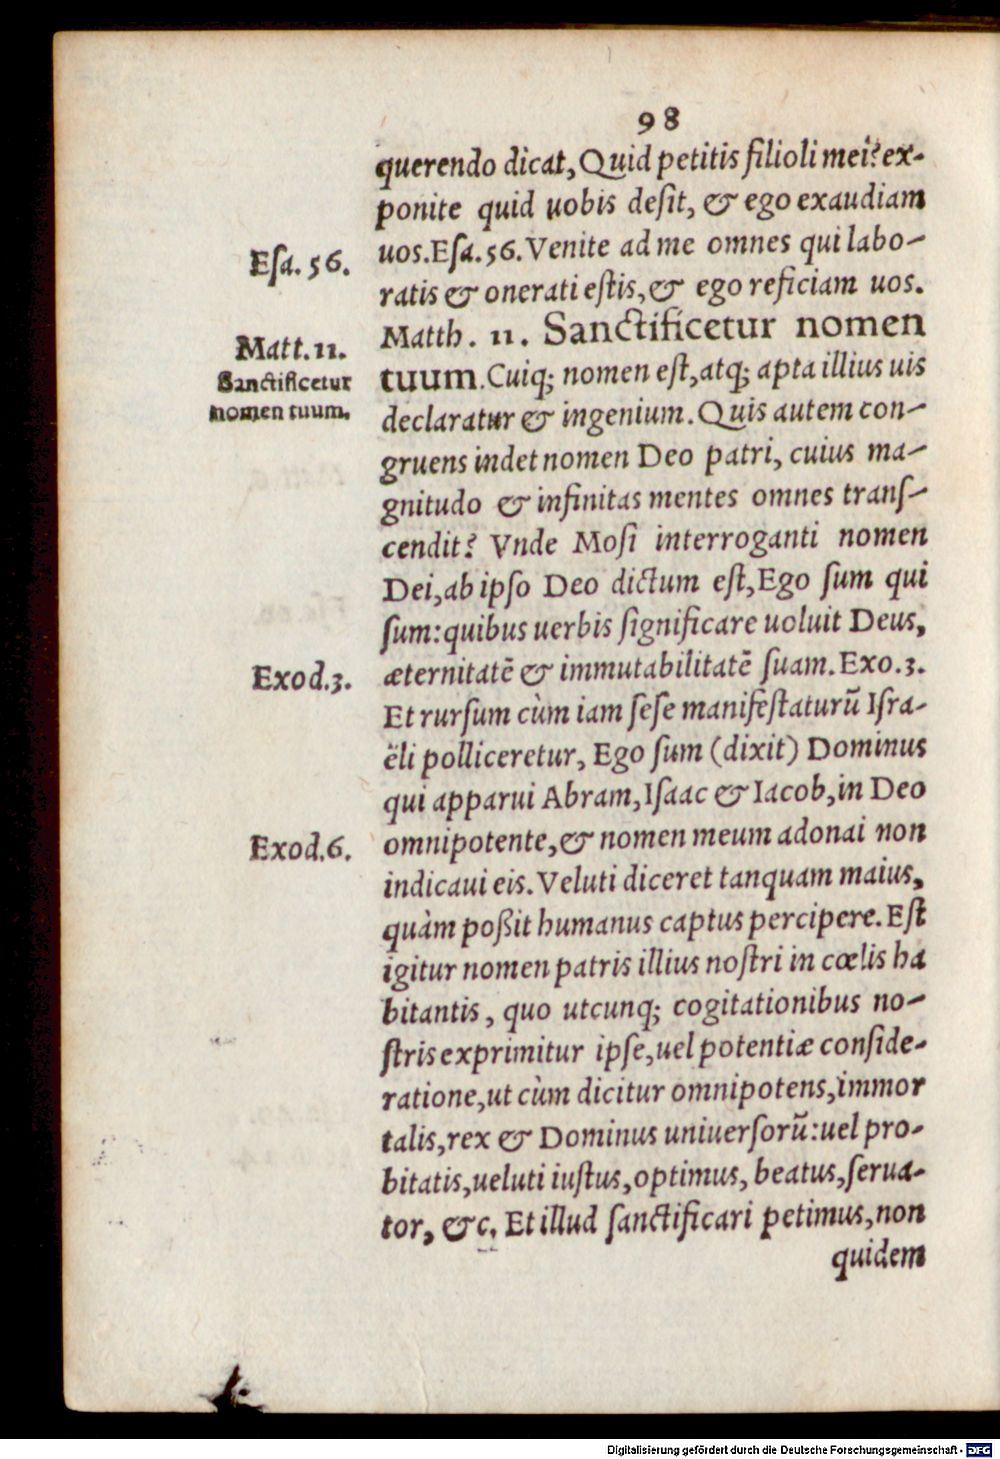 98
querendo dicat, Quid petitis filioli mei? ex-
ponite quid uobis desit, & ego exaudiam
Esa. 56.
uos. Esa. 56. Venite ad me omnes qui labo-
ratis & onerati estis, & ego reficiam uos.
Matt. 11.
Matth. 11. Sanctificetur nomen
Sanctificetur
tuum. Cuiq; nomen est, atq; apta illius uis
nomen tuum.
declaratur & ingenium. Quis autem con-
gruens indet nomen Deo patri, cuius ma-
gnitudo & infinitas mentes omnes trans-
cendit? Vnde Mosi interroganti nomen
Dei, ab ipso Deo dictum est, Ego sum qui
sum: quibus uerbis significare uoluit Deus,
Exod. 3.
æternitatē & immutabilitatē suam. Exo. 3.
Et rursum cùm iam sese manifestaturū Isra-
ëli polliceretur, Ego sum (dixit) Dominus
qui apparui Abram, Isaac & Iacob, in Deo
Exod. 6.
omnipotente, & nomen meum adonai non
indicaui eis. Veluti diceret tanquam maius,
quàm poßit humanus captus percipere. Est
igitur nomen patris illius nostri in cœlis ha
bitantis, quo utcunq; cogitationibus no-
stris exprimitur ipse, uel potentiæ conside-
ratione, ut cùm dicitur omnipotens, immor
talis, rex & Dominus uniuersorū: uel pro-
bitatis, ueluti iustus, optimus, beatus, serua-
tor, &c. Et illud sanctificari petimus, non
quidem
Digitalisierung gefördert durch die Deutsche Forschungsgemeinschaft - DFG